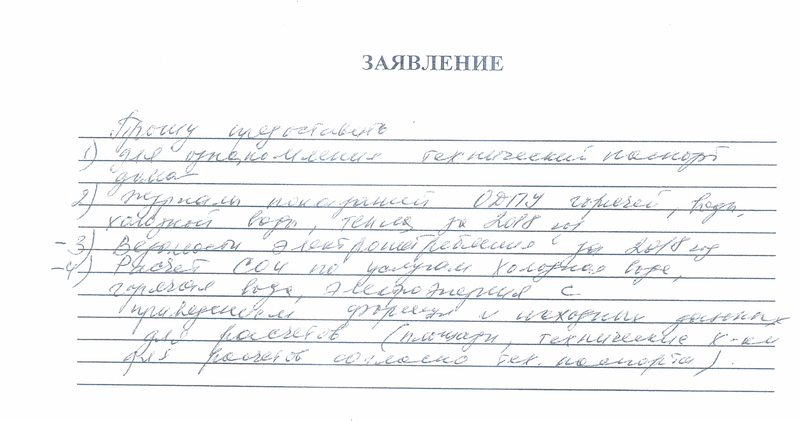 ЗАЯВЛЕНИЕ
Прошу предоставить
1) для ознакомления технический паспорт
дома
2) журналы показаний ОДПУ горячей, воды,
холодной воды, тепла за 2018 год
-3) Ведомости электропотребления за 2018 год
-4) Расчет СОИ по услугам холодная вода,
горячая вода, электроэнергия с
приведением формул и исходных данных
для расчетов (площади, технические х-ки
для расчетов согласно тех. паспорта).